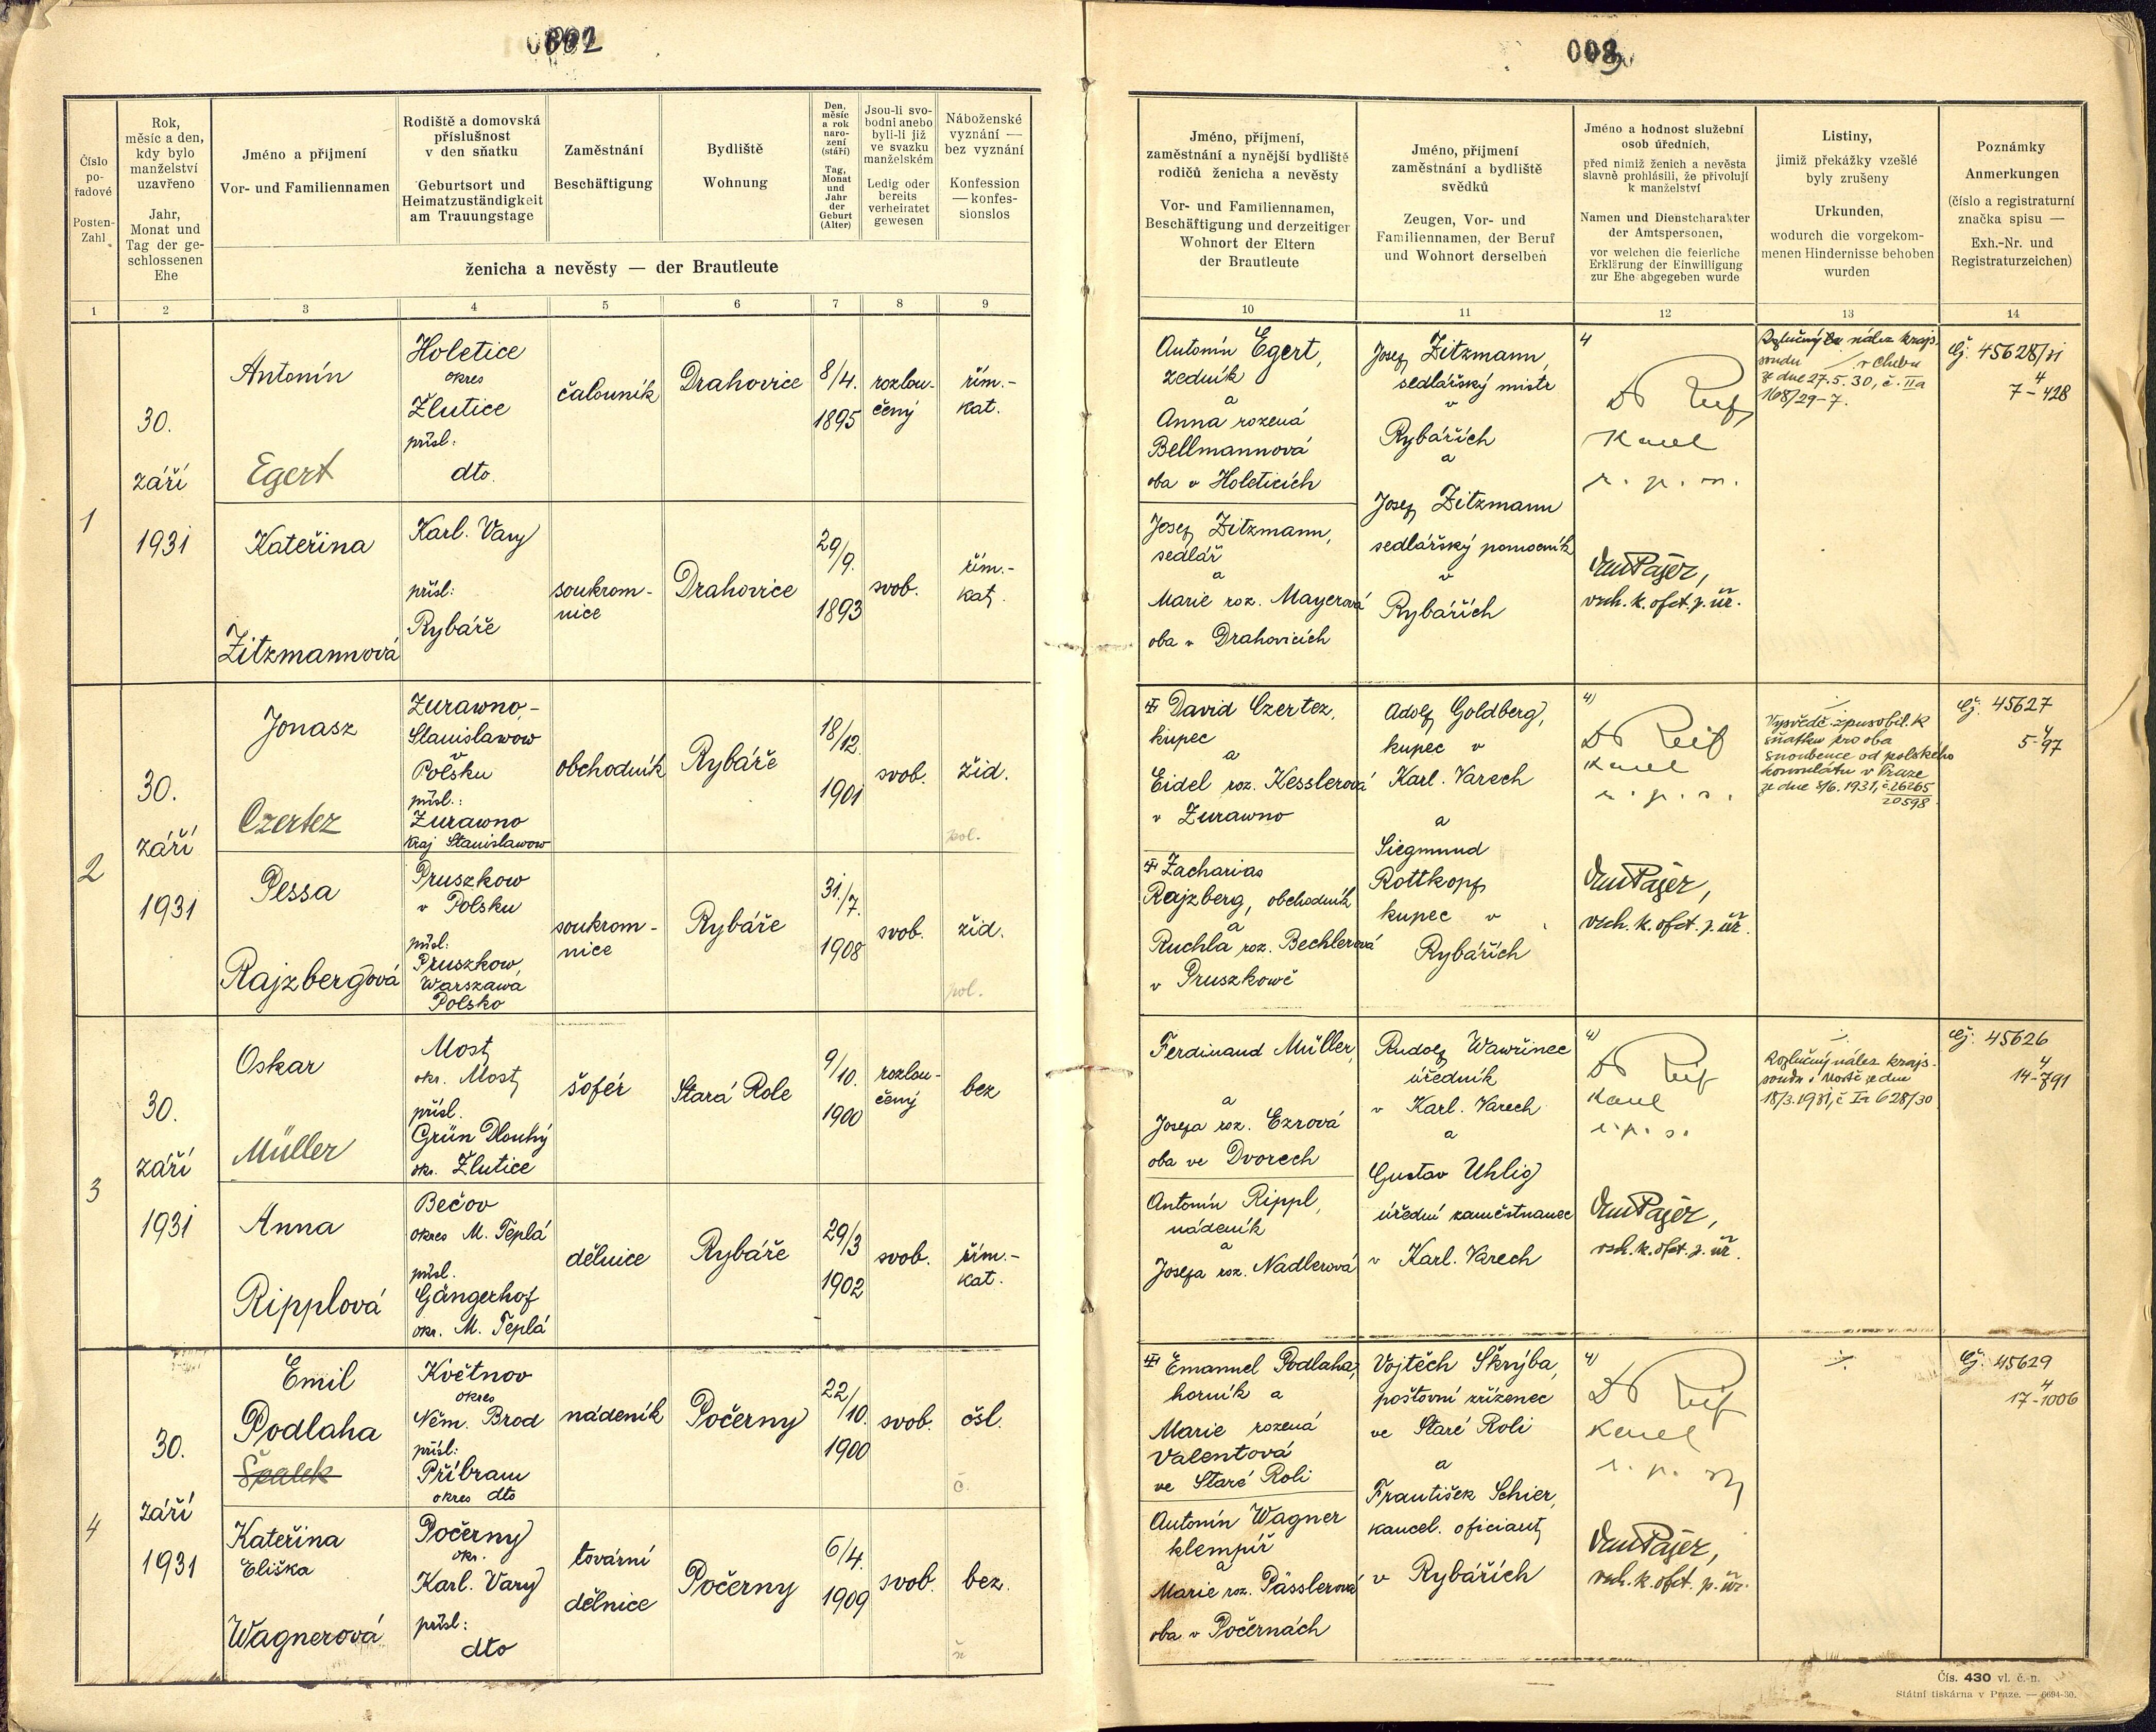 002
003
Číslo
po-
řadové
Posten-
Zahl
Rok,
měsíc a den,
kdy bylo
manželství
uzavřeno
Jahr,
Monat und
Tag der ge-
schlossenen
Ehe
Jméno a příjmení
Vor- und Familiennamen
Rodiště a domovská
příslušnost
v den sňatku
Geburtsort und
Heimatzuständigkeit
am Trauungstage
Zaměstnání
Beschäftigung
Bydliště
Wohnung
Den,
měsíc
a rok
naro-
zení
(stáří)
Tag,
Monat
und
Jahr
der
Geburt
(Alter)
Jsou-li svo-
bodni anebo
byli-li již
ve svazku
manželském
Ledig oder
bereits
verheiratet
gewesen
Náboženské
vyznání —
bez vyznání
Konfession
— konfes-
sionslos
ženicha a nevěsty — der Brautleute
Jméno, příjmení,
zaměstnání a nynější bydliště
rodičů ženicha a nevěsty
Vor- und Familiennamen,
Beschäftigung und derzeitiger
Wohnort der Eltern
der Brautleute
Jméno, příjmení
zaměstnání a bydliště
svědků
Zeugen, Vor- und
Familiennamen, der Beruf
und Wohnort derselben
Jméno a hodnost služební
osob úředních,
před nimiž ženich a nevěsta
slavně prohlásili, že přivolují
k manželství
Namen und Dienstcharakter
der Amtspersonen,
vor welchen die feierliche
Erklärung der Einwilligung
zur Ehe abgegeben wurde
Listiny,
jimiž překážky vzešlé
byly zrušeny
Urkunden,
wodurch die vorgekom-
menen Hindernisse behoben
wurden
Poznámky
Anmerkungen
(číslo a registraturní
značka spisu —
Exh.-Nr. und
Registraturzeichen)
1 2 3 4 5 6 7 8 9 10 11 12 13 14
1
30.
září
1931
Antonín
Egert
Holetice
okres
Žlutice
přísl:
dto.
čalouník
Drahovice
8/4.
1895
rozlou-
čený
řím.-
kat.
Kateřina
Zitzmannová
Karl. Vary
přísl:
Rybáře
soukrom-
nice
Drahovice
29/9.
1893
svob.
řím.-
kat.
Antonín Egert,
zedník
a
Anna rozená
Bellmannová
oba v Holeticích
Josef Zitzmann,
sedlář
a
Marie roz. Mayerová
oba v Drahovicích
Josef Zitzmann,
sedlářský mistr
v
Rybářích
a
Josef Zitzmann
sedlářský pomocník
v
Rybářích
4)
Dr Reif
Karel
Pajer,
vrch. k. ofct. p. úř.
Rozlučný nález krajs.
soudu v Chebu
ze dne 27.5.30, č. IIa
168/29-7.
Čj. 45628/31
4
7-428
2
30.
září
1931
Jonasz
Czertez
Zurawno,-
Stanislawow
v
Polsku
přísl.:
Zurawno
kraj Stanislawow
obchodník
Rybáře
18/12
1901
svob.
žid.
pol.
Pessa
Rajzbergová
Pruszkow
v Polsku
přísl:
Pruszkow,
Warszawa,
Polsko
soukrom-
nice
Rybáře
31/7.
1908
svob.
žid.
pol.
David Czertez,
kupec
a
Eidel roz. Kesslerová
v Zurawno
Zacharias
Rajzberg, obchodník
a
Ruchla roz. Bechlerová
v Pruszkowě
Adolf Goldberg,
kupec v
Karl. Varech
a
Siegmund
Rottkopf
kupec v
Rybářích
4)
Dr Reif
Karel
Pajer,
vrch. k. ofct. p. úř.
Vysvědč. způsobil. k
sňatku pro oba
snoubence od polského
konsulátu v Praze
ze dne 8/6. 1931, č. 26265
20598
Čj. 45627
4
5-97
3
30.
září
1931
Oskar
Müller
Most
okr. Most
přísl.
Grün Dlouhý
okr. Žlutice
šofér
Stará Role
9/10.
1900
rozlou-
čený
bez
Anna
Ripplová
Bečov
okres M. Teplá
přísl.
Gängerhof
okr. M. Teplá
dělnice
Rybáře
29/3
1902
svob.
řím.-
kat.
Ferdinand Müller,
a
Josefa roz. Ezrová
oba ve Dvorech
Antonín Rippl,
nádeník
a
Josefa roz. Nadlerová
Rudolf Wawřinec
úředník
v Karl. Varech
a
Gustav Uhlig
úřední zaměstnanec
v Karl. Varech
4)
Dr Reif
Karel
Pajer,
vrch. k. ofct. p. úř.
Rozlučný nález krajs.
soudu v Mostě ze dne
18/3.1931, č Ia 628/30
Čj. 45626
4
14-791
4
30.
září
1931
Emil
Podlaha
Špalek
Květnov
okres
Něm. Brod
přísl:
Příbram
okres dto
nádeník
Počerny
22/10.
1900
svob.
čsl.
č.
Kateřina
Eliška
Wagnerová
Počerny
okr.
Karl. Vary
přísl:
dto
tovární
dělnice
Počerny
6/4.
1909
svob.
bez.
Emanuel Podlaha,
horník a
Marie rozená
Valentová
ve Staré Roli
Antonín Wagner
klempíř
a
Marie roz. Pässlerová
oba v Počernách
Vojtěch Škrýba,
poštovní zřízenec
ve Staré Roli
a
František Schier,
kancel. oficiant
v Rybářích
4)
Dr Reif
Karel
Pajer,
vrch. k. ofct. p. úř.
Čj. 45629
4
17-1006
Čís. 430 vl. č.-n.
Státní tiskárna v Praze. — 6694-30.